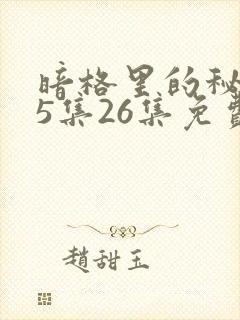 暗格里的秘
5集26集免費
趙甜玉